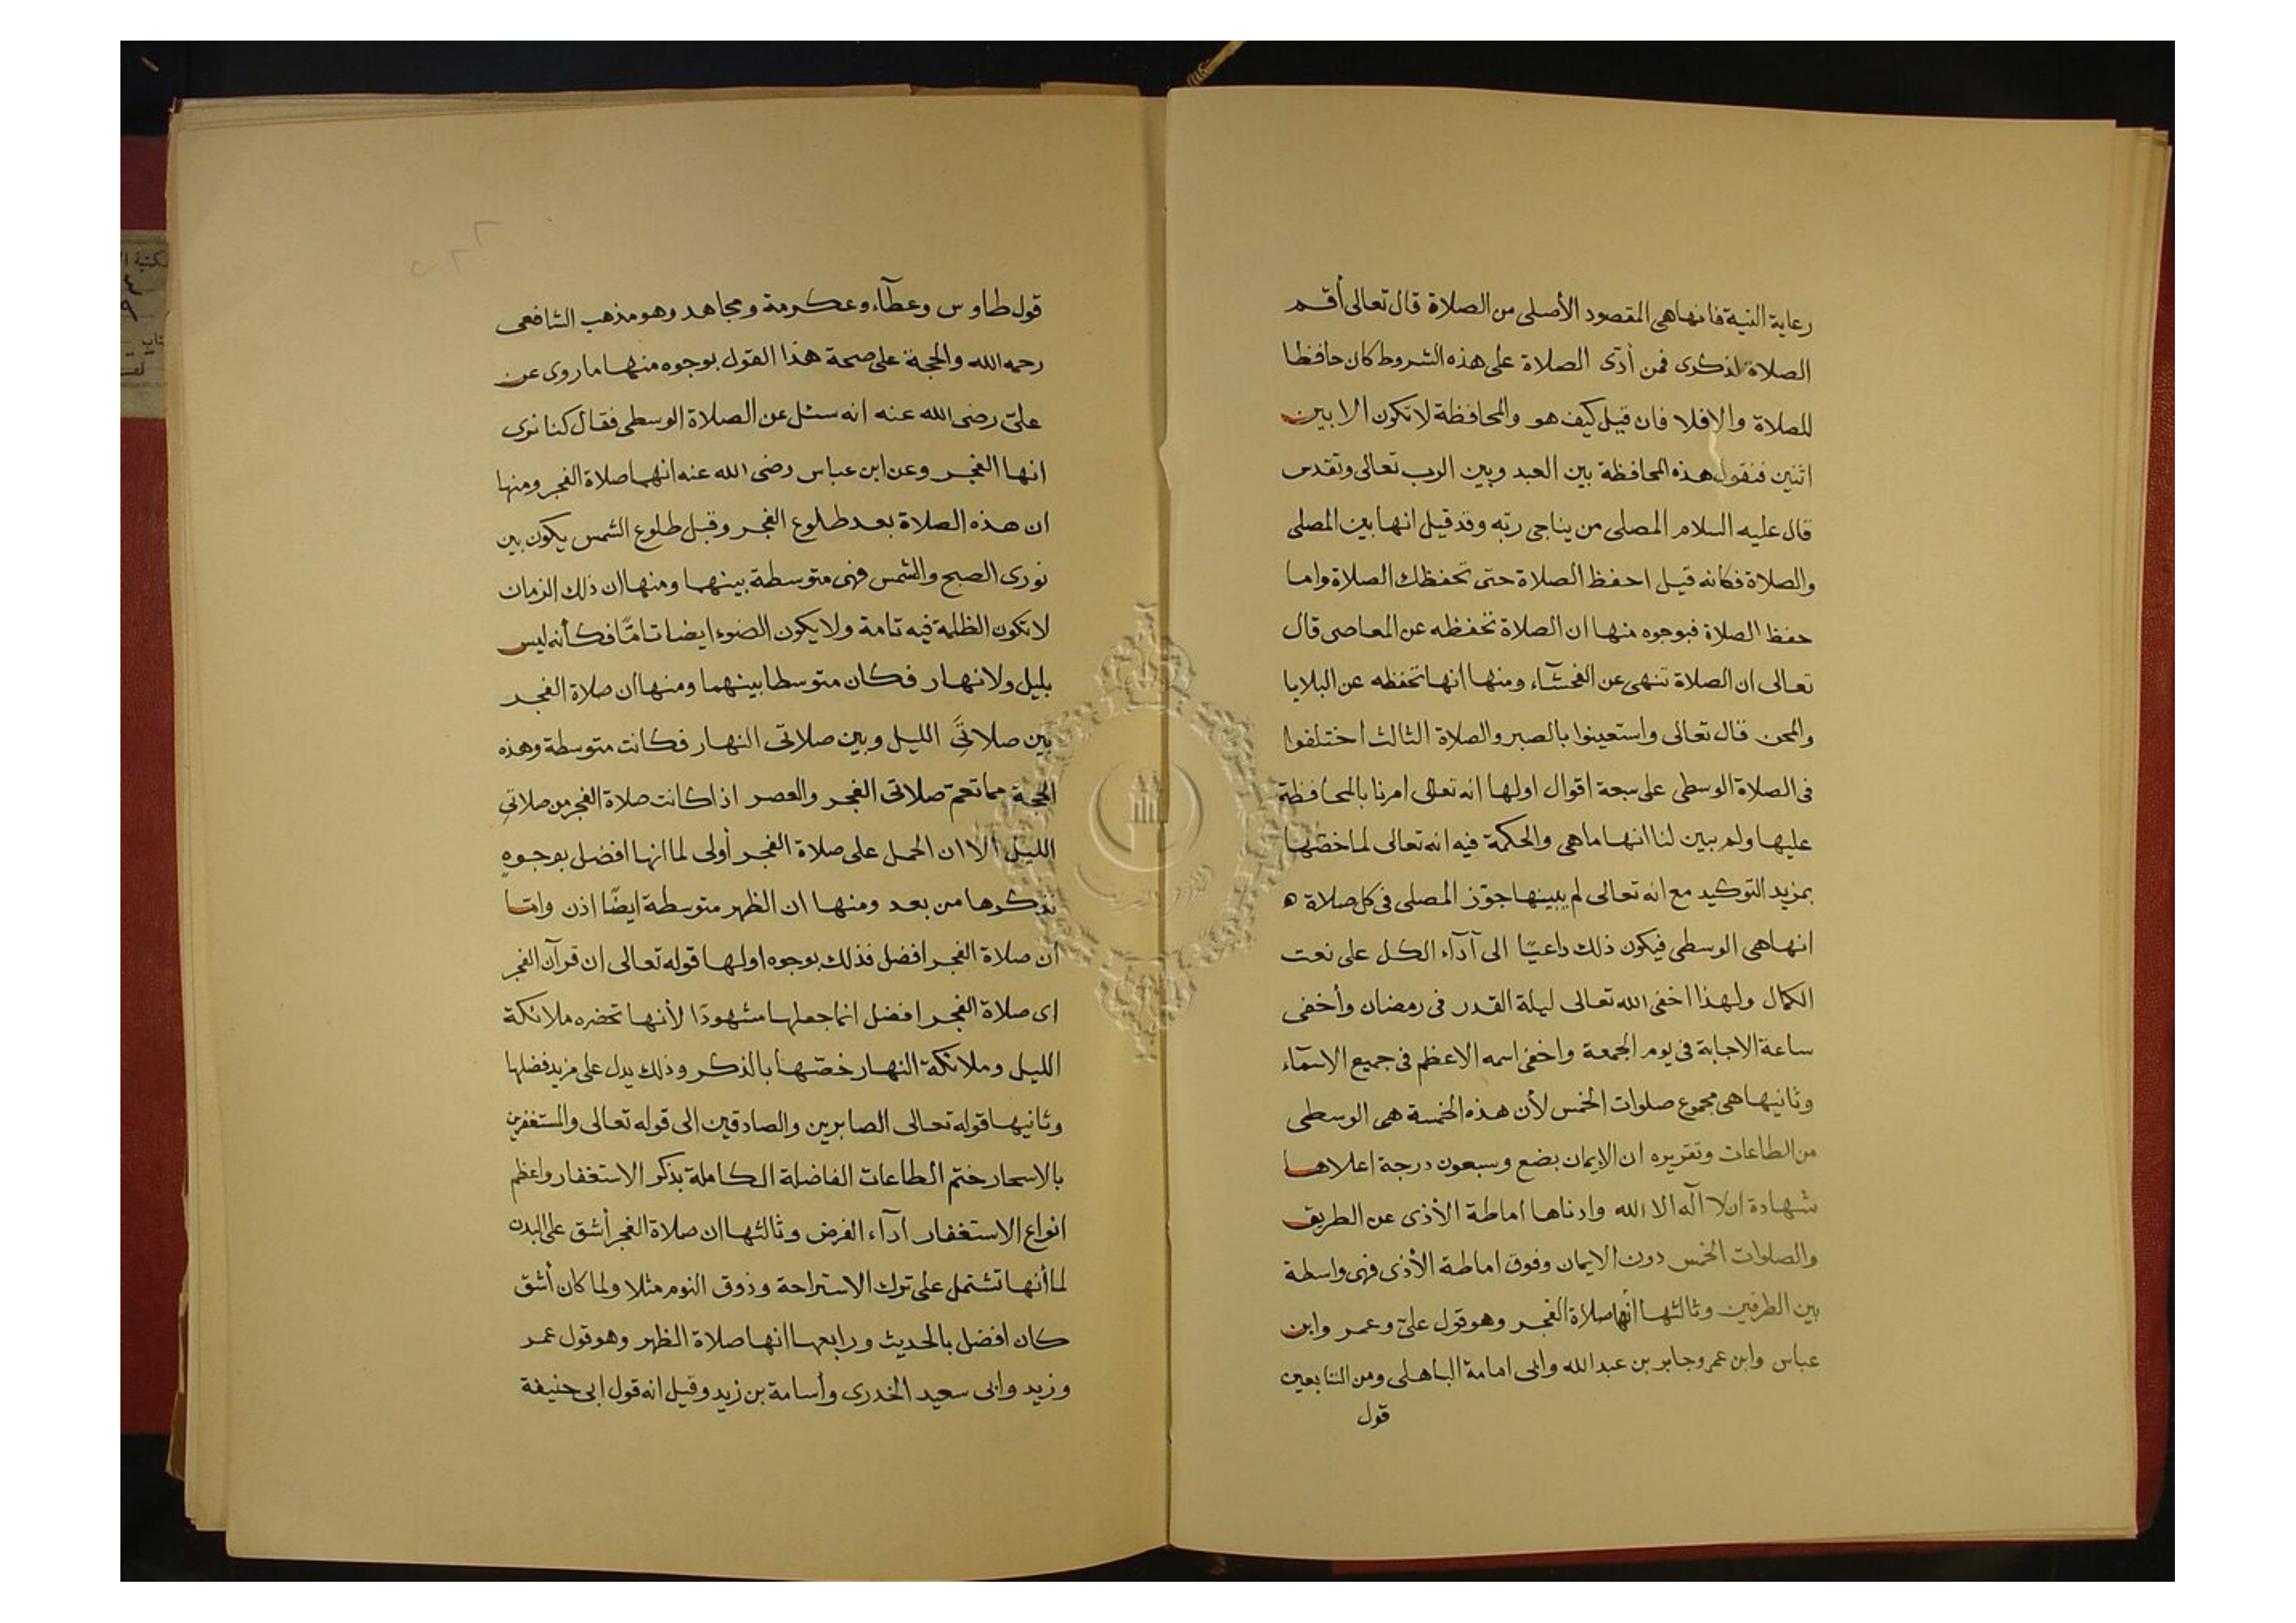 رعاية النية فانها هى المقصود الأصلى من الصلاة قال تعالى أقم
الصلاة لذكرى فمن أدّى الصلاة على هذه الشروط كان حافظا
للصلاة والا فلا فان قيل كيف هو والمحافظة لا تكون الا بين
اثنين فنقول هذه المحافظة بين العبد وبين الرب تعالى وتقدس
قال عليه السلام المصلى من يناجى ربّه وقد قيل انها بين المصلى
والصلاة فكانه قيل احفظ الصلاة حتى تحفظك الصلاة واما
حفظ الصلاة فبوجوه منها ان الصلاة تحفظه عن المعاصى قال
تعالى ان الصلاة تنهى عن الفحشآء ومنها انها تحفظه عن البلايا
والمحن قال تعالى واستعينوا بالصبر والصلاة الثالث اختلفوا
فى الصلاة الوسطى على سبعة اقوال اولها انه تعالى امرنا بالمحافظة
عليها ولم يبين لنا انها ما هى والحكمة فيه انه تعالى لما خصّها
بمزيد التوكيد مع انه تعالى لم يبينها جوّز المصلى فى كل صلاة ه
انها هى الوسطى فيكون ذلك داعيًا الى آدآء الكل على نعت
الكمال ولهذا اخفى الله تعالى ليلة القدر فى رمضان وأخفى
ساعة الاجابة فى يوم الجمعة واخفى اسمه الاعظم فى جميع الاسمآء
وثانيها هى مجموع صلوات الخمس لأن هذه الخمسة هى الوسطى
من الطاعات وتقريره ان الايمان بضع وسبعون درجة اعلاها
شهادة ان لا اله الا الله وادناها اماطة الأذى عن الطريق
والصلوات الخمس دون الايمان وفوق اماطة الأذى فهى واسطة
بين الطرفين وثالثها أنها صلاة الفجر وهو قول علىّ وعمر وابن
عباس وابن عمر وجابر بن عبد الله وابى امامة الباهلى ومن التابعين
قول
قول طاوس وعطآء وعكرمة ومجاهد وهو مذهب الشافعى
رحمه الله والحجة على صحة هذا القول بوجوه منها ما روى عن
علىّ رضى الله عنه انه سئل عن الصلاة الوسطى فقال كنا نرى
انها الفجر وعن ابن عباس رضى الله عنه انها صلاة الفجر ومنها
ان هذه الصلاة بعد طلوع الفجر وقبل طلوع الشمس يكون بين
نورى الصبح والشمس فهى متوسطة بينهما ومنها ان ذلك الزمان
لا تكون الظلمة فيه تامة ولا يكون الضوء ايضا تامًّا فكأنه ليس
بليل ولا نهار فكان متوسطا بينهما ومنها ان صلاة الفجر
بين صلاتَىِ الليل وبين صلاتى النهار فكانت متوسطة وهذه
الحجة مما تعم صلاتى الفجر والعصر اذا كانت صلاة الفجر من صلاتىِ
الليل ألا ان الحمل على صلاة الفجر أولى لما انها افضل بوجوهٍ
نذكرها من بعد ومنها ان الظهر متوسطة ايضًا اذن وامّا
ان صلاة الفجر افضل فذلك بوجوه اولها قوله تعالى ان قرآن الفجر
اى صلاة الفجر افضل انما جعلها مشهودًا لأنها تحضره ملائكة
الليل وملائكة النهار خصّها بالذكر وذلك يدل على مزيد فضلها
وثانيها قوله تعالى الصابرين والصادقين الى قوله تعالى والمستغفرين
بالاسحار ختم الطاعات الفاضلة الكاملة بذكر الاستغفار واعظم
انواع الاستغفار ادآء الفرض وثالثها ان صلاة الفجر أشق على البدن
لما أنها تشتمل على ترك الاستراحة وذوق النوم مثلا ولما كان أشق
كان افضل بالحديث ورابعها انها صلاة الظهر وهو قول عمر
وزيد وابى سعيد الخدرى وأسامة بن زيد وقيل انه قول ابى حنيفة